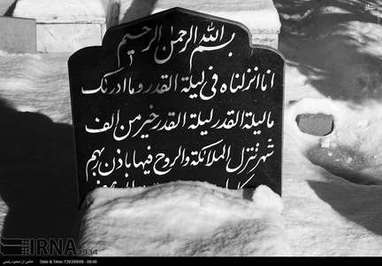 بسم الله الرحمن الرحیم
انا انزلناه فی لیلة القدر وما ادرک
ما لیلة القدر لیلة القدر خیر من الف
شهر تنزل الملائکة والروح فیها باذن ربهم
IRNA